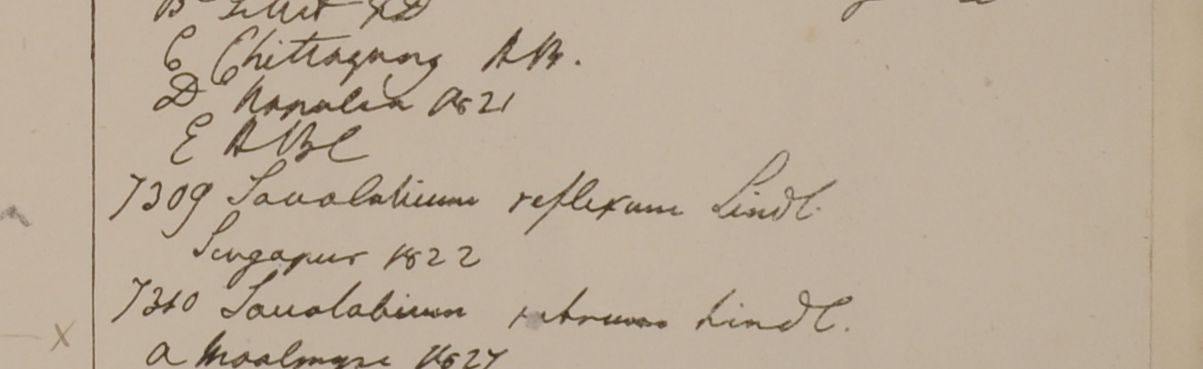 C Chittagong HB.
D Napalia 1821
E HBC
7309 Saccolabium reflexum Lindl.
Singapur 1822
7310 Saccolabium rubrum Lindl.
a Moalmyne 1827